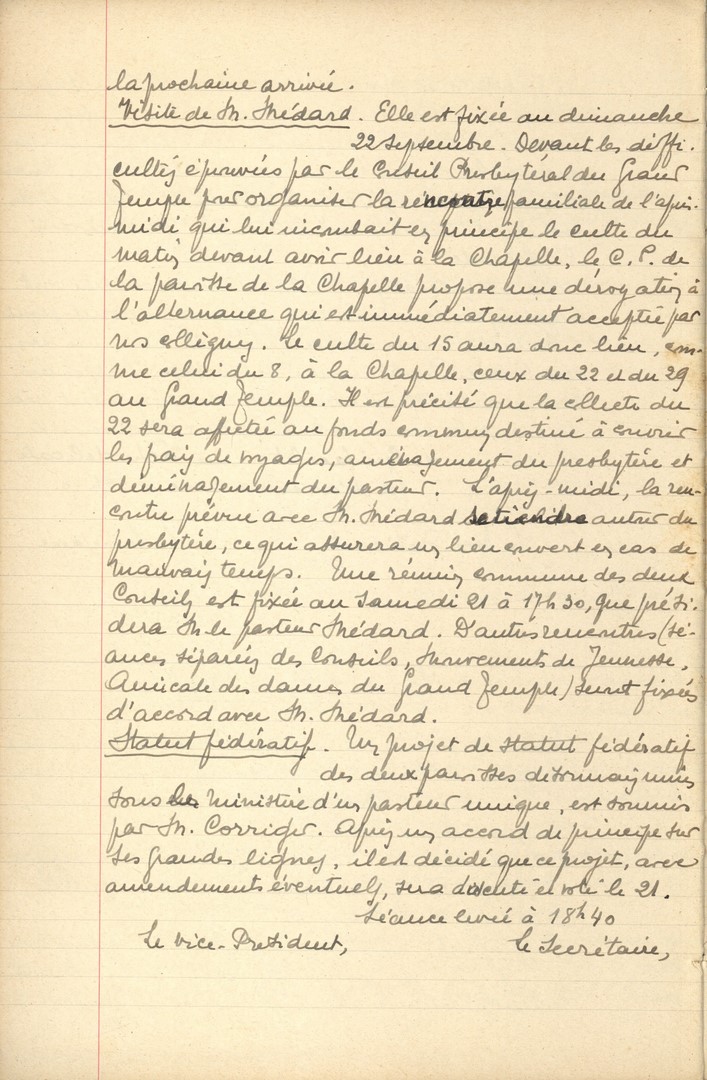 la prochaine arrivée.
Visite de M. Médard. Elle est fixée au dimanche
22 septembre. Devant les diffi-
cultés éprouvées par le Conseil Presbytéral du Grand
Temple pour organiser la rencontre familiale de l'après-
midi qui lui incombait en principe le culte du
matin devant avoir lieu à la Chapelle, le C. P. de
la paroisse de la Chapelle propose une dérogation à
l'alternance qui est immédiatement acceptée par
nos collègues. Le culte du 15 aura donc lieu, com-
me celui du 8, à la Chapelle, ceux du 22 et du 29
au Grand Temple. Il est précisé que la collecte du
22 sera affectée au fonds commun destiné à couvrir
les frais de voyages, aménagement du presbytère et
déménagement du pasteur. L'après-midi, la ren-
contre prévue avec M. Médard se tiendra autour du
presbytère, ce qui assurera un lieu couvert en cas de
mauvais temps. Une réunion commune des deux
Conseils est fixée au Samedi 21 à 17h30, que prési-
dera M. le pasteur Médard. D'autres rencontres (sé-
ances séparées des Conseils, Mouvements de Jeunesse,
Amicale des dames du Grand Temple) seront fixées
d'accord avec M. Médard.
Statut fédératif. Un projet de statut fédératif
des deux paroisses désormais unies
sous le ministère d'un pasteur unique, est soumis
par M. Corriger. Après un accord de principe sur
ses grandes lignes, il est décidé que ce projet, avec
amendements éventuels, sera discuté et voté le 21.
Séance levée à 18h40
Le Vice-Président,
Le Secrétaire,